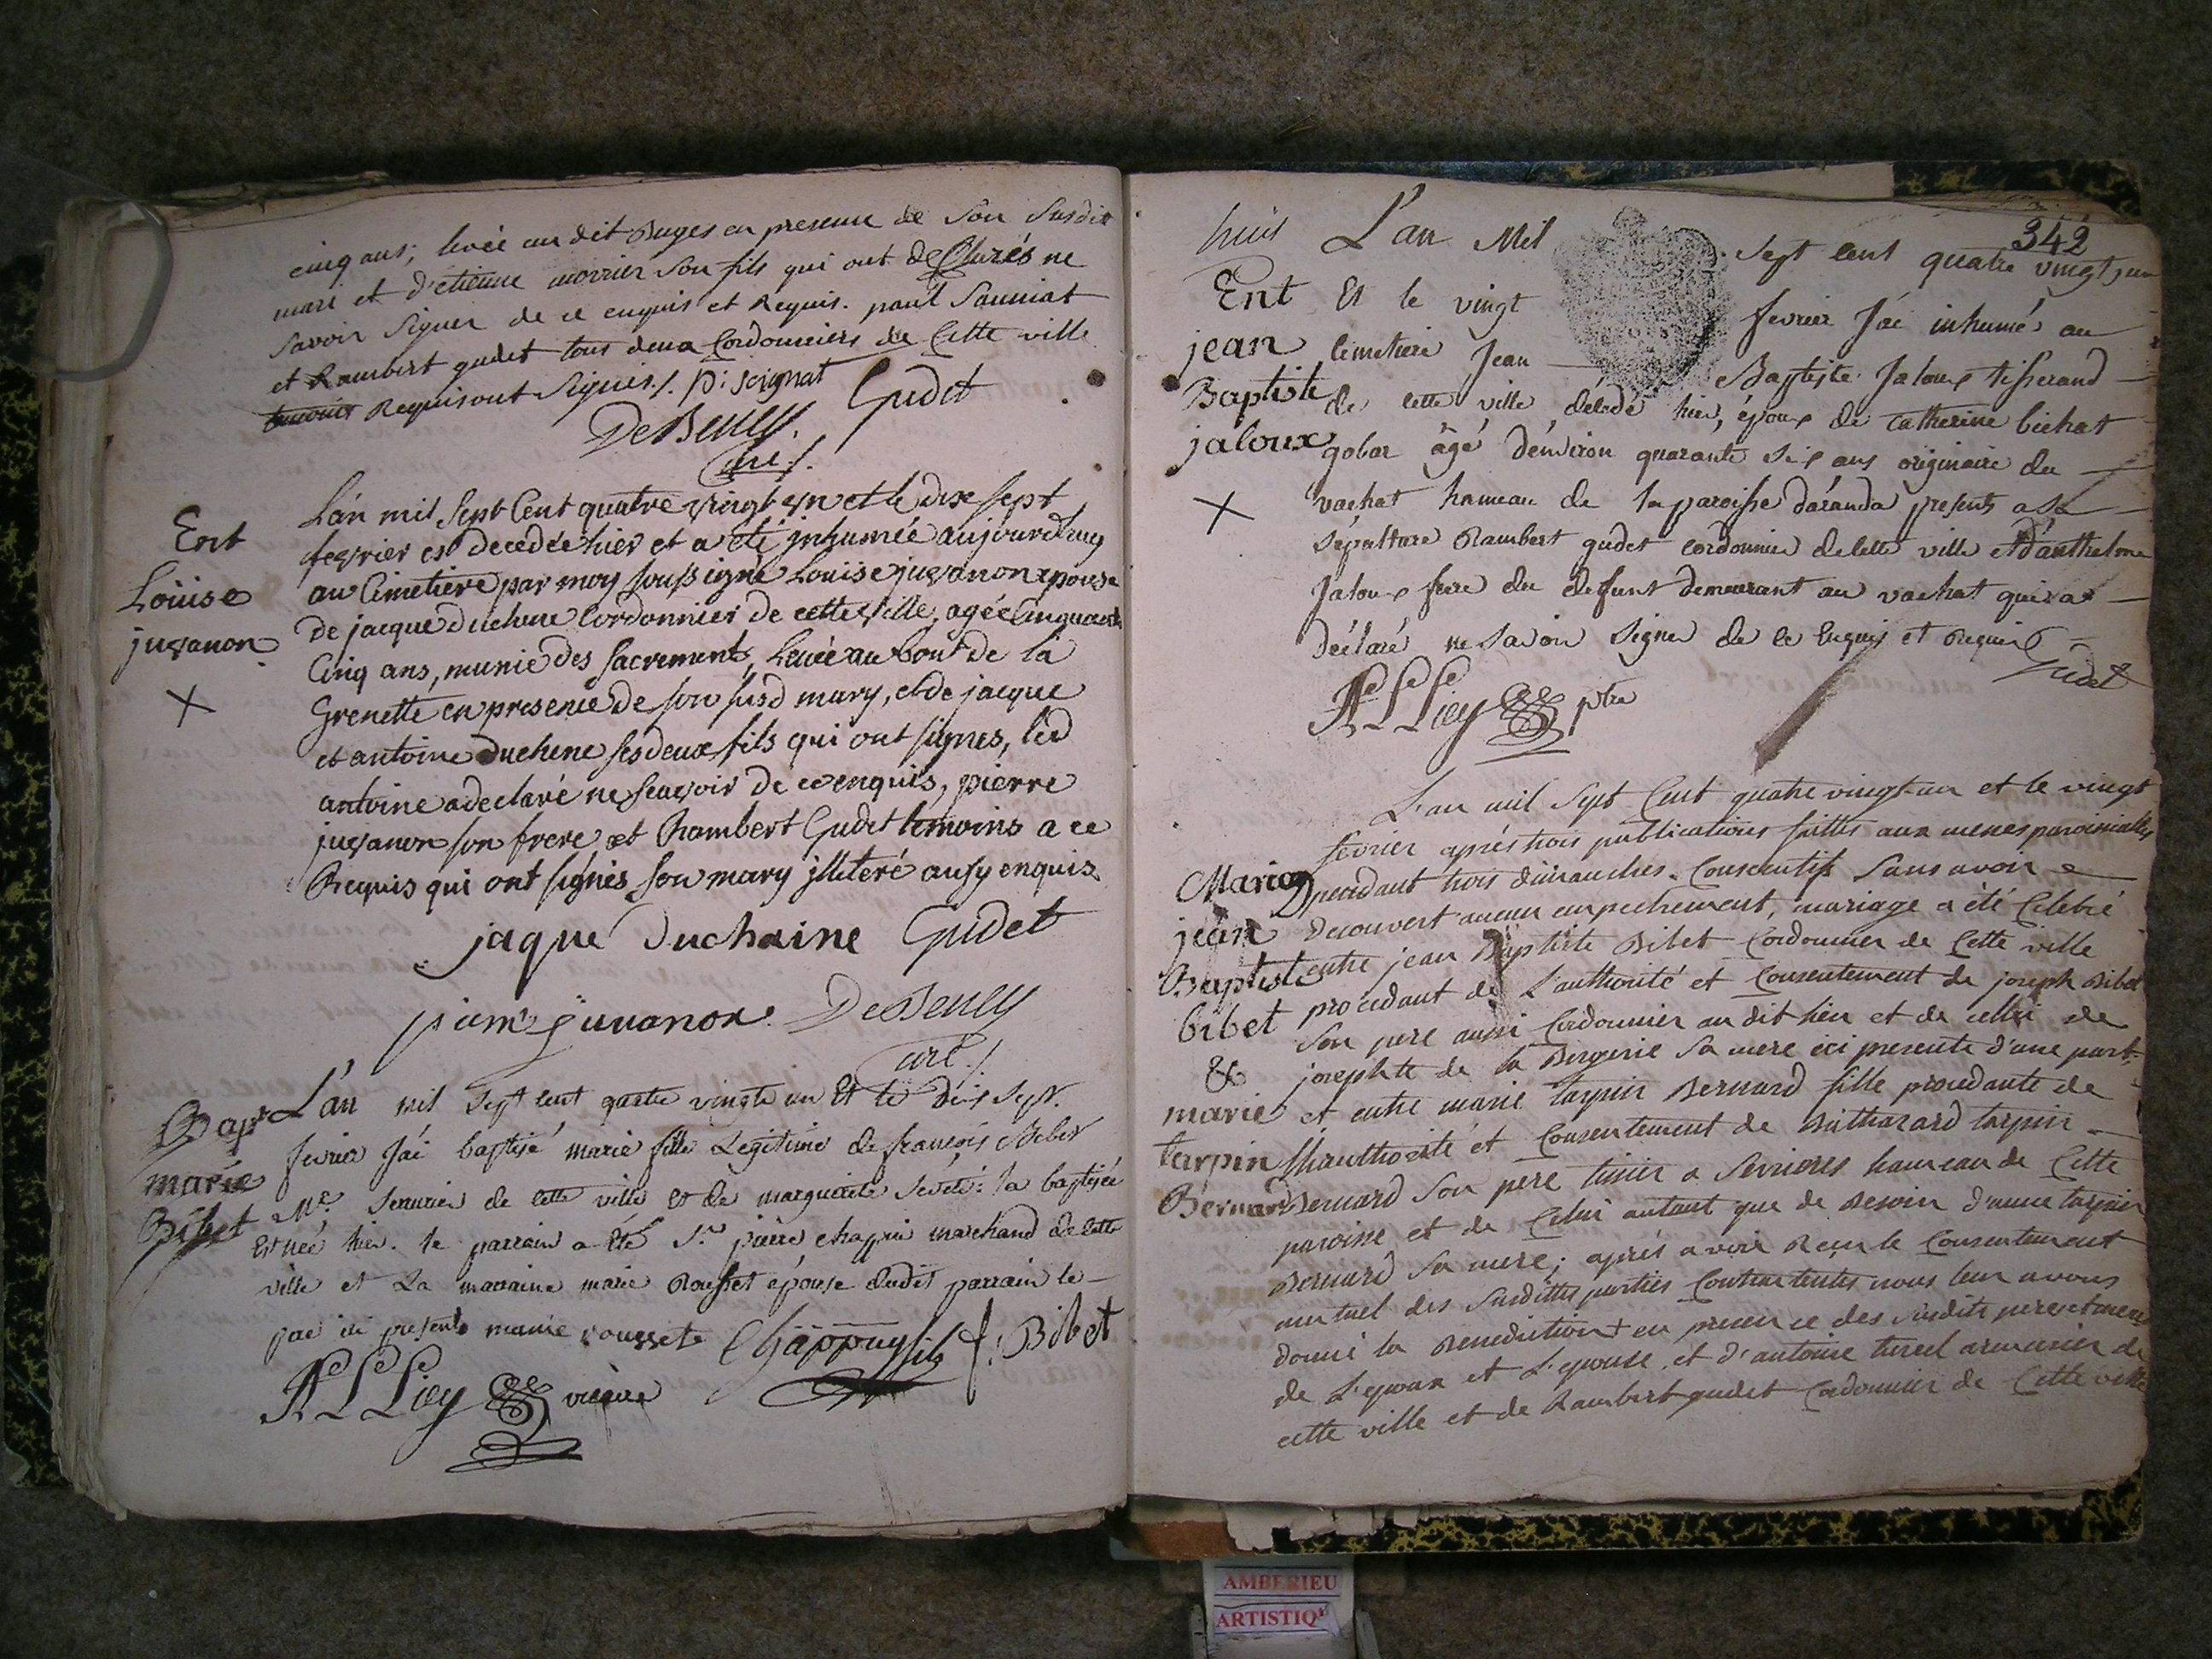 cinq ans; levée au dit Buges en presence de Son Susdit
mari et d'etienne morrier Son fils qui ont declarés ne
Savoir Signer de ce enquis et Requis. paul Sauniat
et Rambert gudet tous deux Cordonniers de Cette ville
temoins Requis ont Signés./. p: seignat Gudet
DeBeuly
curé./.
Ent
Loüise
juvanon
L'an mil Sept Cent quatre vingt un et le dix sept
fevrier est decedée hier et a eté inhumée aujourdhuy
au Cimetiere par moy soussigné Louise juvanon epouse
de jacque duchene Cordonnier de cette ville, agée Cinquante
Cinq ans, munie des sacrements, Levée au bout de la
Grenette en presence de son susd mary, et de jacque
et antoine duchene ses deux fils qui ont signés, led
antoine a declaré ne scavoir de ce enquis, pierre
juvanon son frere et Rambert Gudet temoins a ce
Requis qui ont signés son mary jlliteré ausy enquis
jaque Duchaine Gudet
juvanon DeBeuly
curé./.
Bapt
marie
Bibet
L'an mil Sept cent quatre vingt un Et le Dix Sept
fevrier J'ai baptisé marie fille Legitime de françois Bibet
Mre. Serrurier de cette ville et de marguerite : la baptisée
Est née hier. le parrain a Eté Sr. pierre chappui marchand de cette
ville et La marraine marie Rousset épouse dudit parrain le
pere ici present marie roussete Chäppuy fils f: Bibet
vicaire
342
huis L'an Mil Sept Cent quatre vingt, un
Ent
jean
Baptiste
jaloux
Et le vingt fevrier J'ai inhumé au
Cimetiere Jean Baptiste Jaloux tisserand
de cette ville décédé hier, époux de Catherine bichat
gobar âgé d'environ quarante six ans originaire du
vachat hameau de la paroisse d'aranda presents a Sa
Sépulture Rambert gudet cordonnier de cette ville et d'anthelme
Jaloux frere du defunt demeurant au vachat qui a
déclaré ne Savoir Signer de ce Enquis et Requis
Gudet
ptre
Mariag
jean
Baptiste
bibet
&
marie
tarpin
Bernard
L'an mil Sept Cent quatre vingt-un et le vingt
fevrier aprés trois publications faittes aux messes paroissialles
pendant trois dimanches Consecutifs Sans avoir
decouvert aucun empechement, mariage a été Celebré
entre jean Baptiste Bibet Cordonnier de Cette ville
procedant de L'authorité et Consentement de joseph Bibet
Son pere aussi Cordonnier au dit lieu et de celui de
josephte de la Bergerie Sa mere ici presente d'une part:
et entre marie tarpin Bernard fille procedante de
L'hauthorité et Consentement de Balthazard tarpin
Bernard Son pere a Sevrieres hameau de Cette
paroisse et de Celui autant que de Besoin d'anne tarpin
Bernard Sa mere; aprés avoir Reçu le Consentement
mutuel des Susdittes parties Contractantes nous leur avons
donné la Benediction en presence des Susdits peres et meres
de L'epoux et L'epouse, et d'antoine turcel armurier de
cette ville et de Rambert gudet Cordonnier de Cette ville
AMBERIEU
ARTISTIQ'